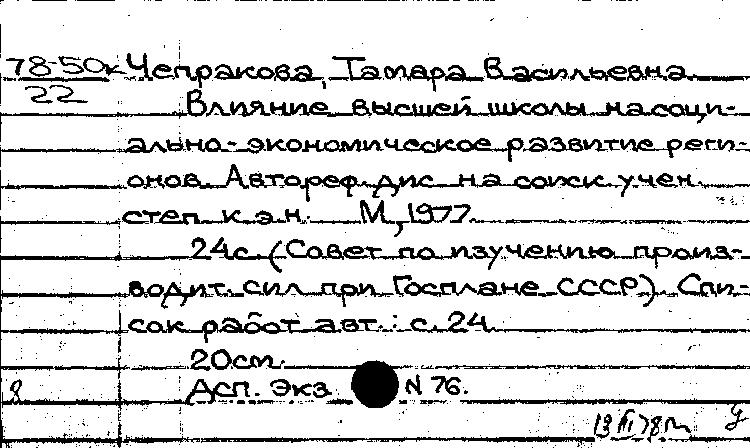 78-50к Чепракова, Тамара Васильевна.
22
Влияние высшей школы на соци-
ально-экономическое развитие реги-
онов. Автореф. дис. на соиск. учен.
степ. к.э.н. М., 1977.
24с. (Совет по изучению произ-
водит. сил при Госплане СССР). Спи-
сок работ авт.: с. 24.
20см.
8 Дсп. Экз. N 76.
13 III 78